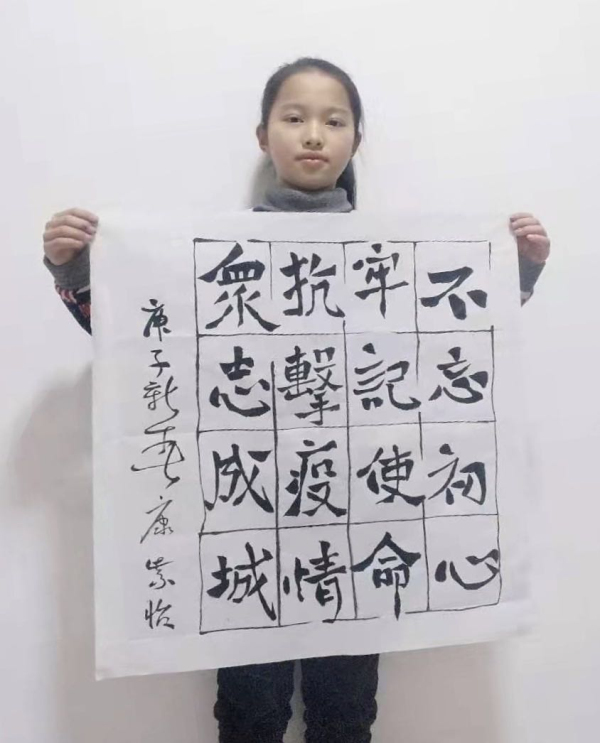 不忘初心
牢記使命
抗擊疫情
眾志成城
庚子新春康紫怡